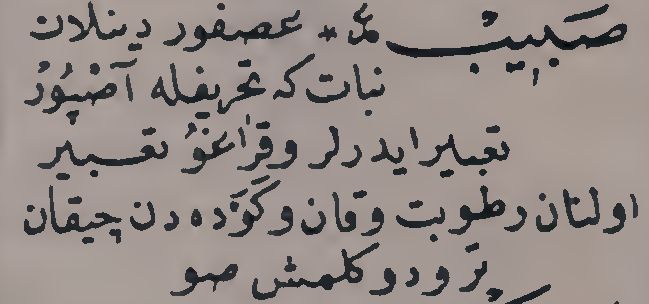 صَبِيبْ عَ * عصفور دينلان
نبات كه تحريفله آصْپُورْ
تعبير ايدرلر و قراغو تعبير
اولنان رطوبت و قان و كَوْده دن چيقان
تر و دوكلمش صو